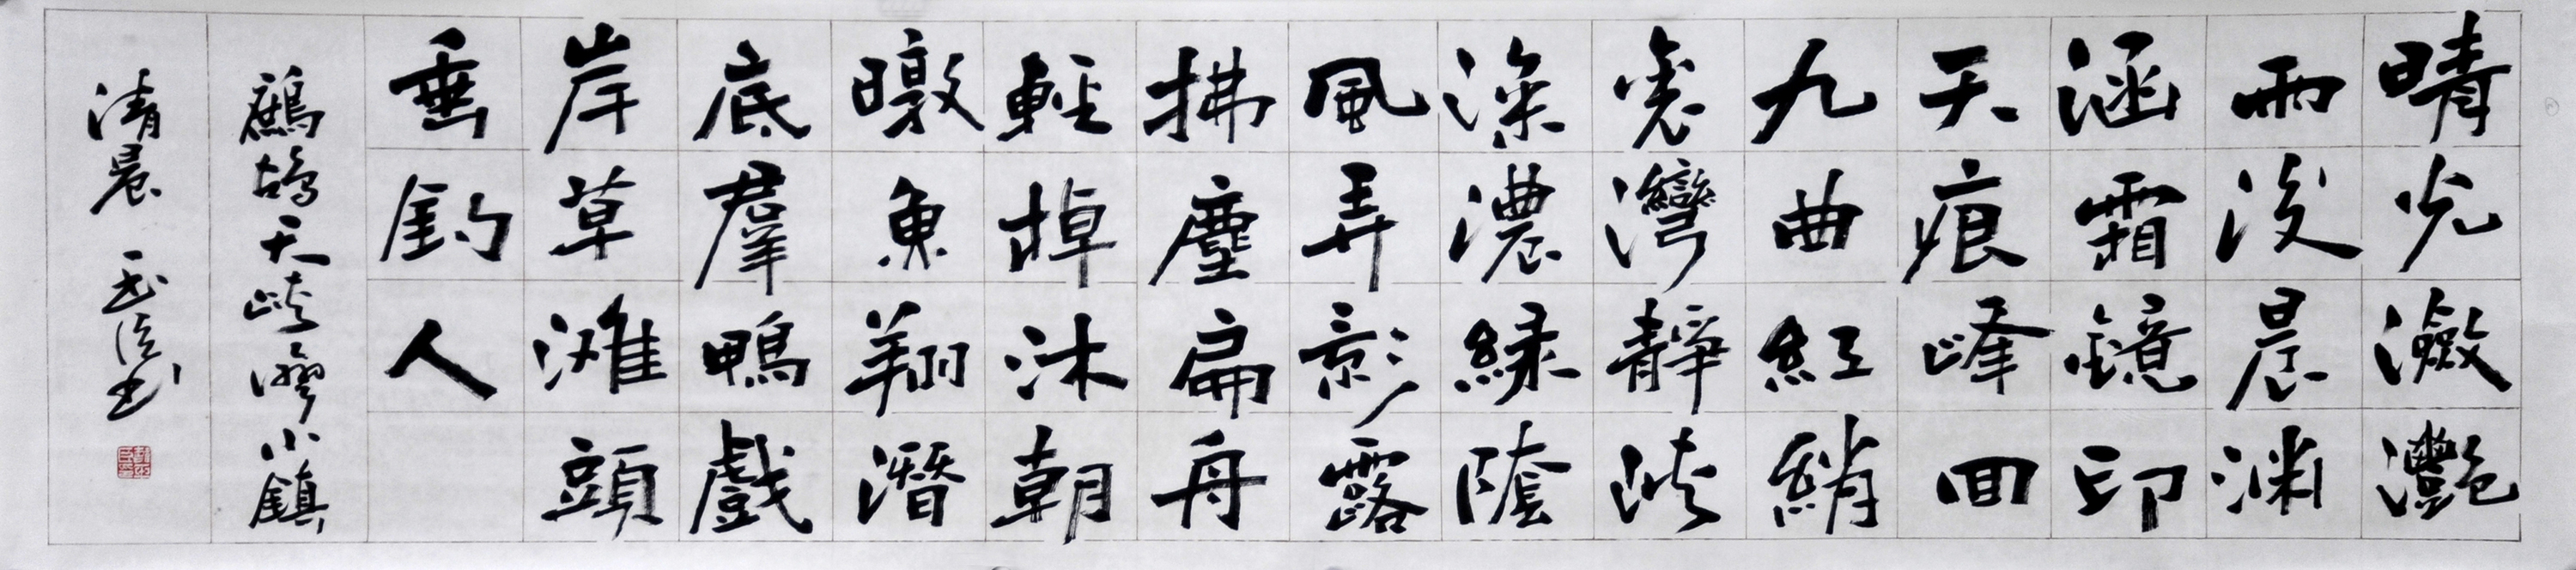 晴光瀲灩
雨後晨渊
涵霜鏡印
天痕峰回
九曲紅綃
裊灣靜陜
深濃綠蔭
風弄影露
拂塵扁舟
輕棹沐朝
暾魚翔潛
底羣鴨戲
岸草灘頭
垂釣人
鷓鴣天 峽灣小鎮
清晨 書